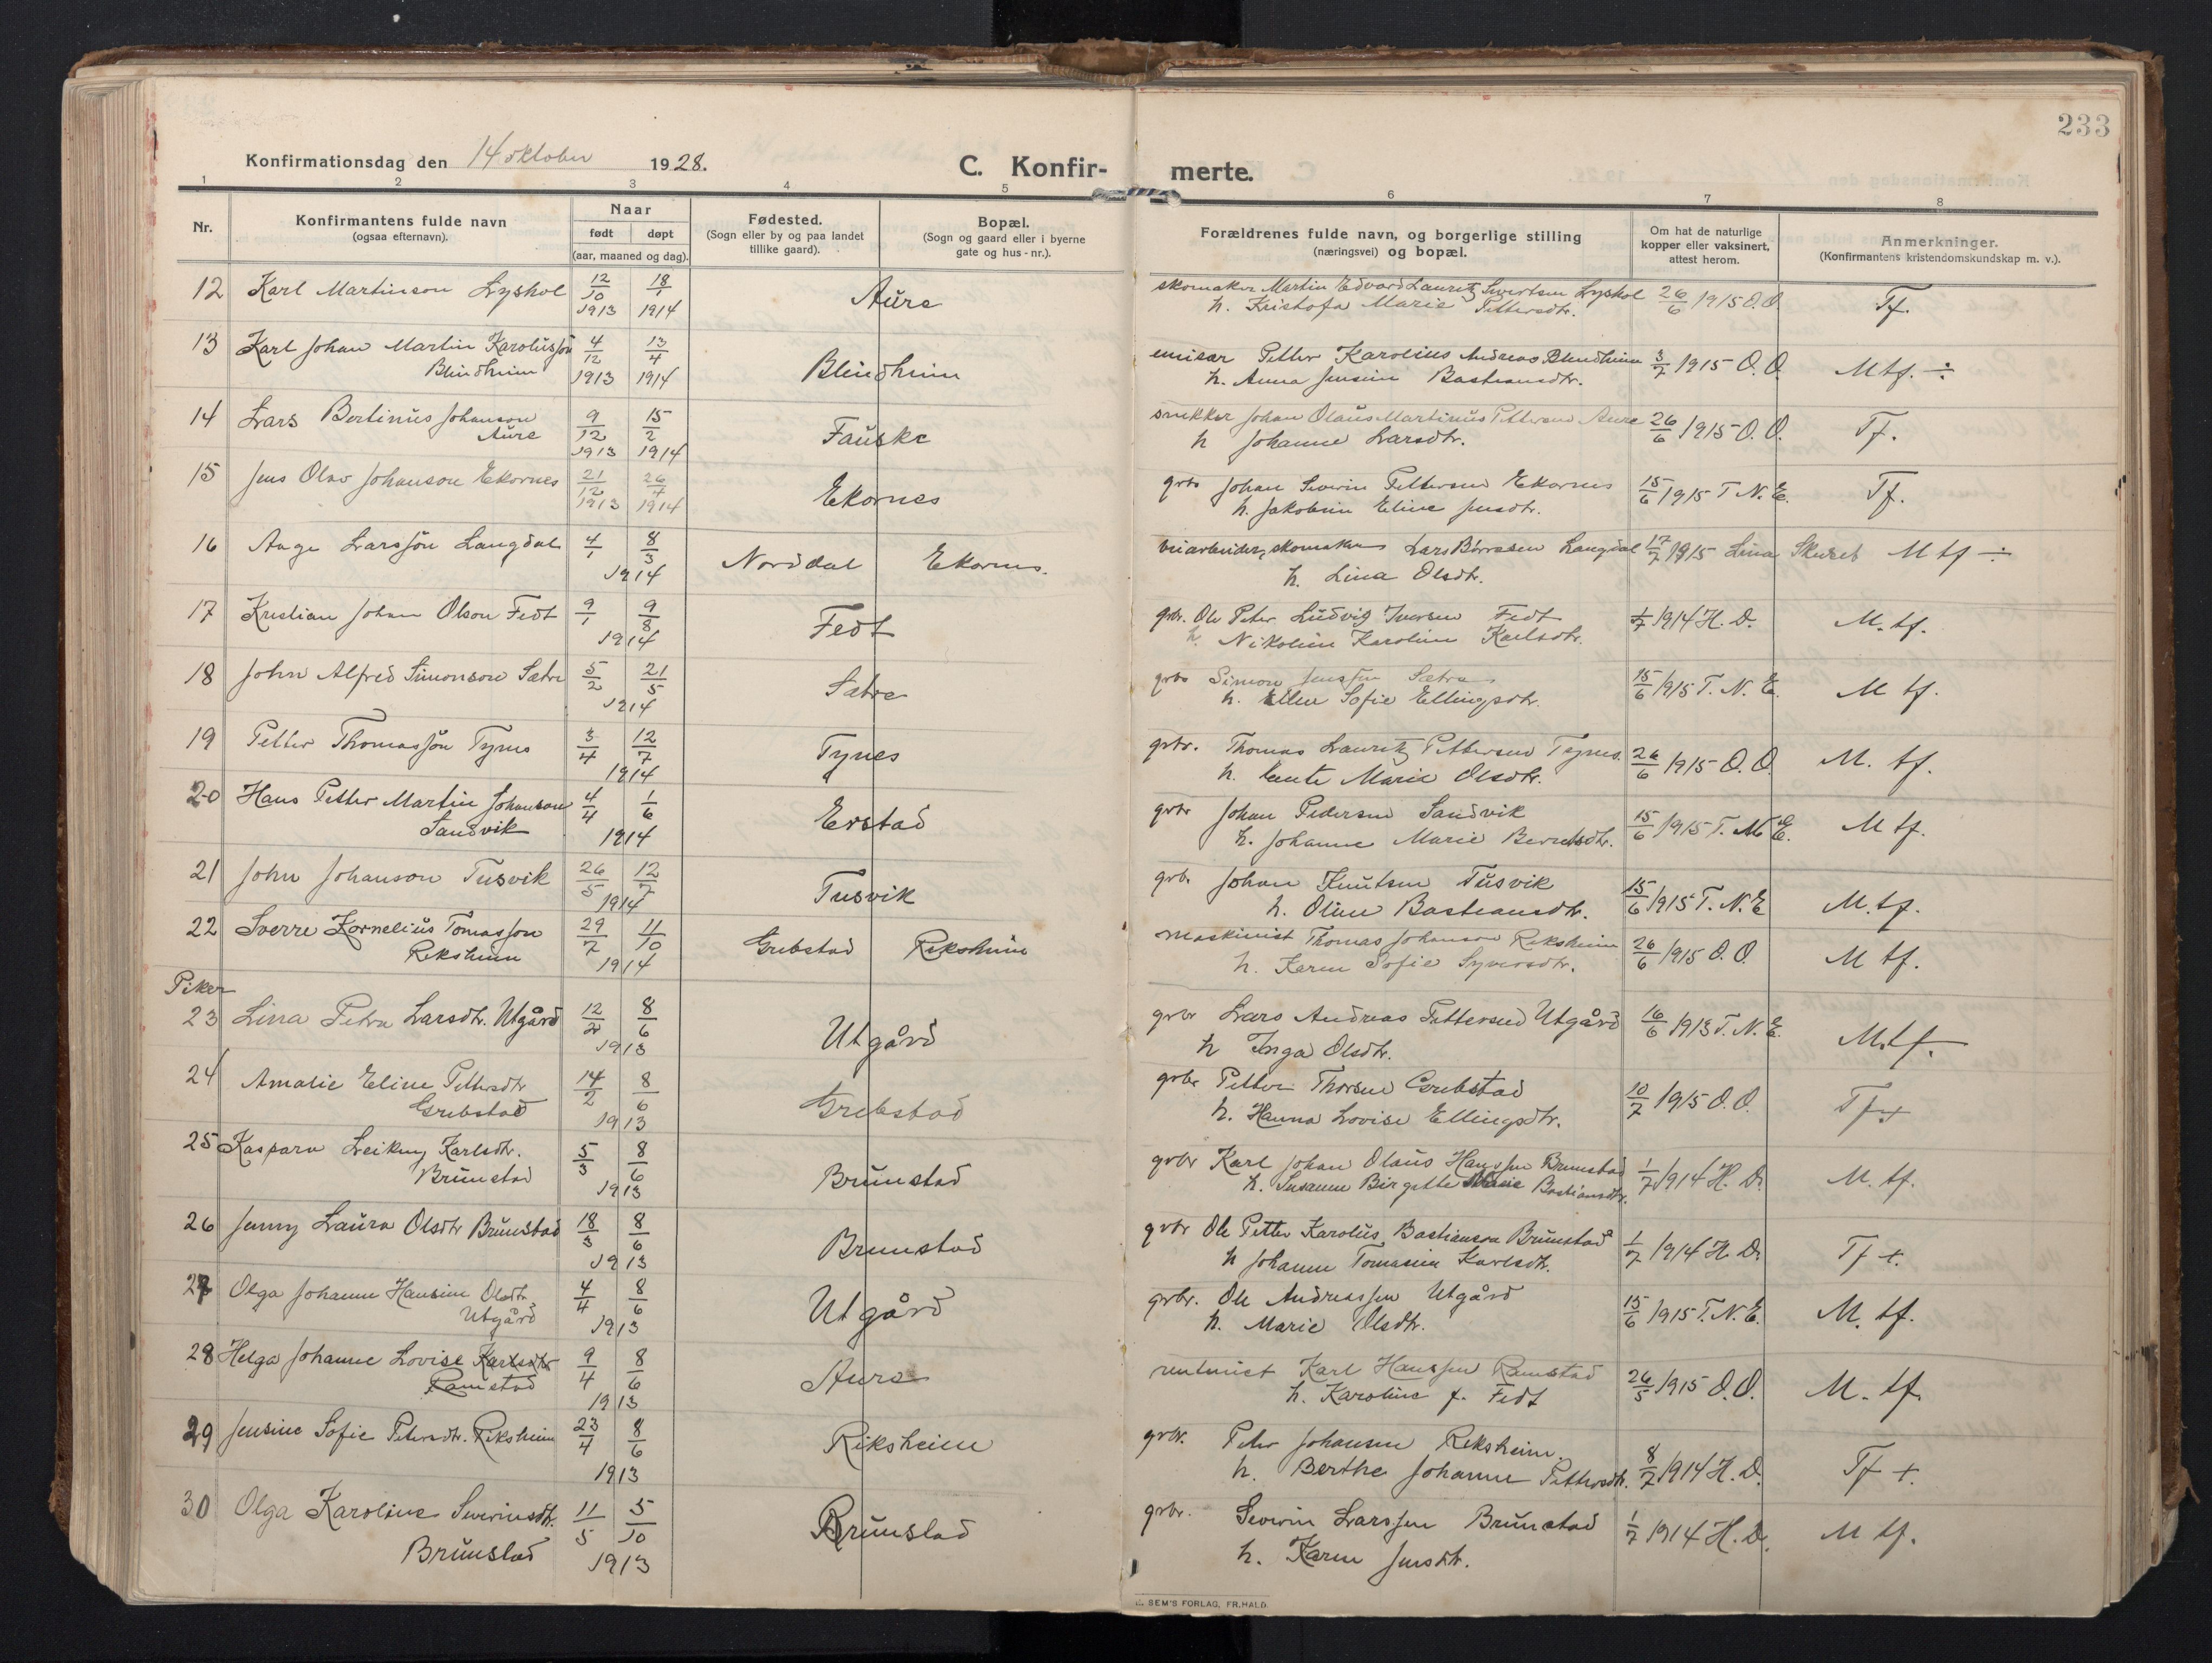 233
Konfirmationsdag den 14 oktober 1928.
C. Konfir- merte.
1 2 3 4 5 6 7 8
Nr.
Konfirmantens fulde navn
(ogsaa efternavn).
Naar
født døpt
(aar, maaned og dag).
Fødested.
(Sogn eller by og paa landet
tillike gaard).
Bopæl.
(Sogn og gaard eller i byerne
gate og hus-nr.).
Forældrenes fulde navn, og borgerlige stilling
(næringsvei) og bopæl.
Om hat de naturlige
kopper eller vaksinert,
attest herom.
Anmerkninger.
(Konfirmantens kristendomskundskap m. v.).
12 Karl Martinson Lyshol 12/10 1913 18/1 1914 Aure skomaker Martin Edvard Lauritz Sivertsen Lyshol 26/6 1915 O.O. Tf.
h. Kristofa Marie Pettersdtr.
13 Karl Johan Martin Karolusson 4/12 1913 13/4 1914 Blindheim emisær Petter Karolius Andreas Blindheim 3/7 1915 O.O. Mtf. ÷
Blindheim h. Anna Jensine Bastiansdtr.
14 Lars Bertinus Johanson 9/12 1913 15/2 1914 Fauske snekker Johan Olaus Martinus Pettersen Aure 26/6 1915 O.O. Tf.
Aure h Johanne Larsdtr.
15 Jens Olav Johanson Ekornes 21/12 1913 26/4 1914 Ekornes grbr Johan Severin Pettersen Ekornes 15/6 1915 T.N.E. Tf.
h. Jakobine Eline Jensdtr.
16 Aage Larssøn Langdal 4/1 8/3 1914 Norddal Ekornes. veiarbeider, skomaker Lars Børresen Langdal 17/7 1915 Lina Skuset Mtf ÷
h. Lina Olsdtr.
17 Kristian Johan Olson Fedt 9/1 9/8 1914 Fedt grbr. Ole Peter Ludvig Iversen Fedt 1/7 1914 H.D. M.tf.
h. Nikoline Karoline Karlsdtr.
18 John Alfred Simonson Sætre 5/2 21/5 1914 Sætre grbr Simon Jenssen Sætre 15/6 1915 T.N.E. M tf.
h. Ellen Sofie Ellingsdtr.
19 Petter Thomassøn Tynes 3/4 12/7 1914 Tynes grbr. Thomas Lauritz Pettersen Tynes 26/6 1915 O.O. M. tf.
h. Marie Olsdtr.
20 Hans Petter Martin Johanson 4/4 1/6 1914 Erstad grbr Johan Pedersen Sandvik 15/6 1915 T.N.E. M tf.
Sandvik h. Johanne Marie Berntsdtr.
21 John Johanson Tusvik 26/5 12/7 1914 Tusvik grb. Johan Knutsen Tusvik 15/6 1915 T.N.E M.tf.
h. Oline Bastiansdtr.
22 Sverre Kornelius Tomasson 29/7 11/10 1914 Grebstad Riksheim maskinist Thomas Johanson Riksheim 26/6 1915 O.O. M tf.
Riksheim h. Karen Sofie Syversdtr.
Piker
23 Lina Petra Larsdtr. Utgård 12/2 8/6 1913 Utgård grbr Lars Andreas Pettersen Utgård 16/6 1913 T.N.E. M.tf.
h Inga Olsdtr.
24 Amalie Eline Pettersdtr 14/2 8/6 1913 Grebstad grbr Petter Thorsen Grebstad 10/7 1915 O.O. Tf+
Grebstad h. Hanna Lovise Ellingsdtr.
25 Kaspara Leikny Karlsdtr. 5/3 8/6 1913 Brunstad grbr Karl Johan Olaus Hanssen Brunstad 1/7 1914 H.D. M.tf.
Brunstad h. Susanne Birgitte Marie Bastiansdtr.
26 Jenny Laura Olsdtr Brunstad 18/3 8/6 1913 Brunstad grbr Ole Petter Karolus Bastianson Brunstad 1/7 1914 H.D. Tf +.
h Johanne Tomasine Karlsdtr.
27 Olga Johanne Hansine Olsdtr. 4/4 8/6 1913 Utgård grbr. Ole Andreassen Utgård 15/6 1915 T.N.E. M. tf.
Utgård h. Marie Olsdtr.
28 Helga Johanne Lovise Karlsdtr 9/4 8/6 1913 Aure Karl Hanssen Ramstad 26/5 1915 O.O. M. tf.
Ramstad h. Karoline f. Fedt
29 Jensine Sofie Petersdtr. Riksheim 23/4 8/6 1913 Riksheim grbr. Peter Johansen Riksheim. 8/7 1914 H.D. Tf +.
h. Berthe Johanne Pettersdtr.
30 Olga Karoline Severinsdtr. 11/5 5/10 1913 Brunstad grbr. Severin Larssen Brunstad 1/7 1914 H.D. M tf.
Brunstad h. Karen Jensdtr.
SEM'S FORLAG, FR.HALD.